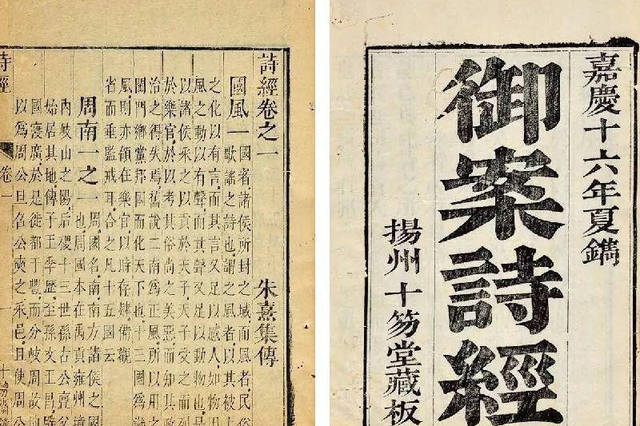 嘉慶十六年夏鐫
御案詩經
揚州十笏堂藏板
詩經卷之一
朱熹集傳
國風一
國者諸侯所封之域而風者民
歌謠之詩也謂之風者以其被
之化以有言而其言又足以感人如物
風之動以有聲而其聲又足以動物也
以諸侯采之以貢於天子天子受之而
於樂官於以考其俗尚之美惡而知其
治之得失焉舊說二南為正風所以用之
閨門鄉黨邦國而化天下也十三國為
風則亦領在樂官以時存肄備觀
省而垂監戒耳合之凡十五國云
周南一之一
周國名南南方諸侯之國
也周國本在禹貢雍州境
內岐山之陽后稷十三世孫古公亶父
始居其地傳子王季歷至孫文王昌
國寖廣於是徙都于豐而分岐周故
以為周公旦召公奭之采邑且使周公
詩經
卷一